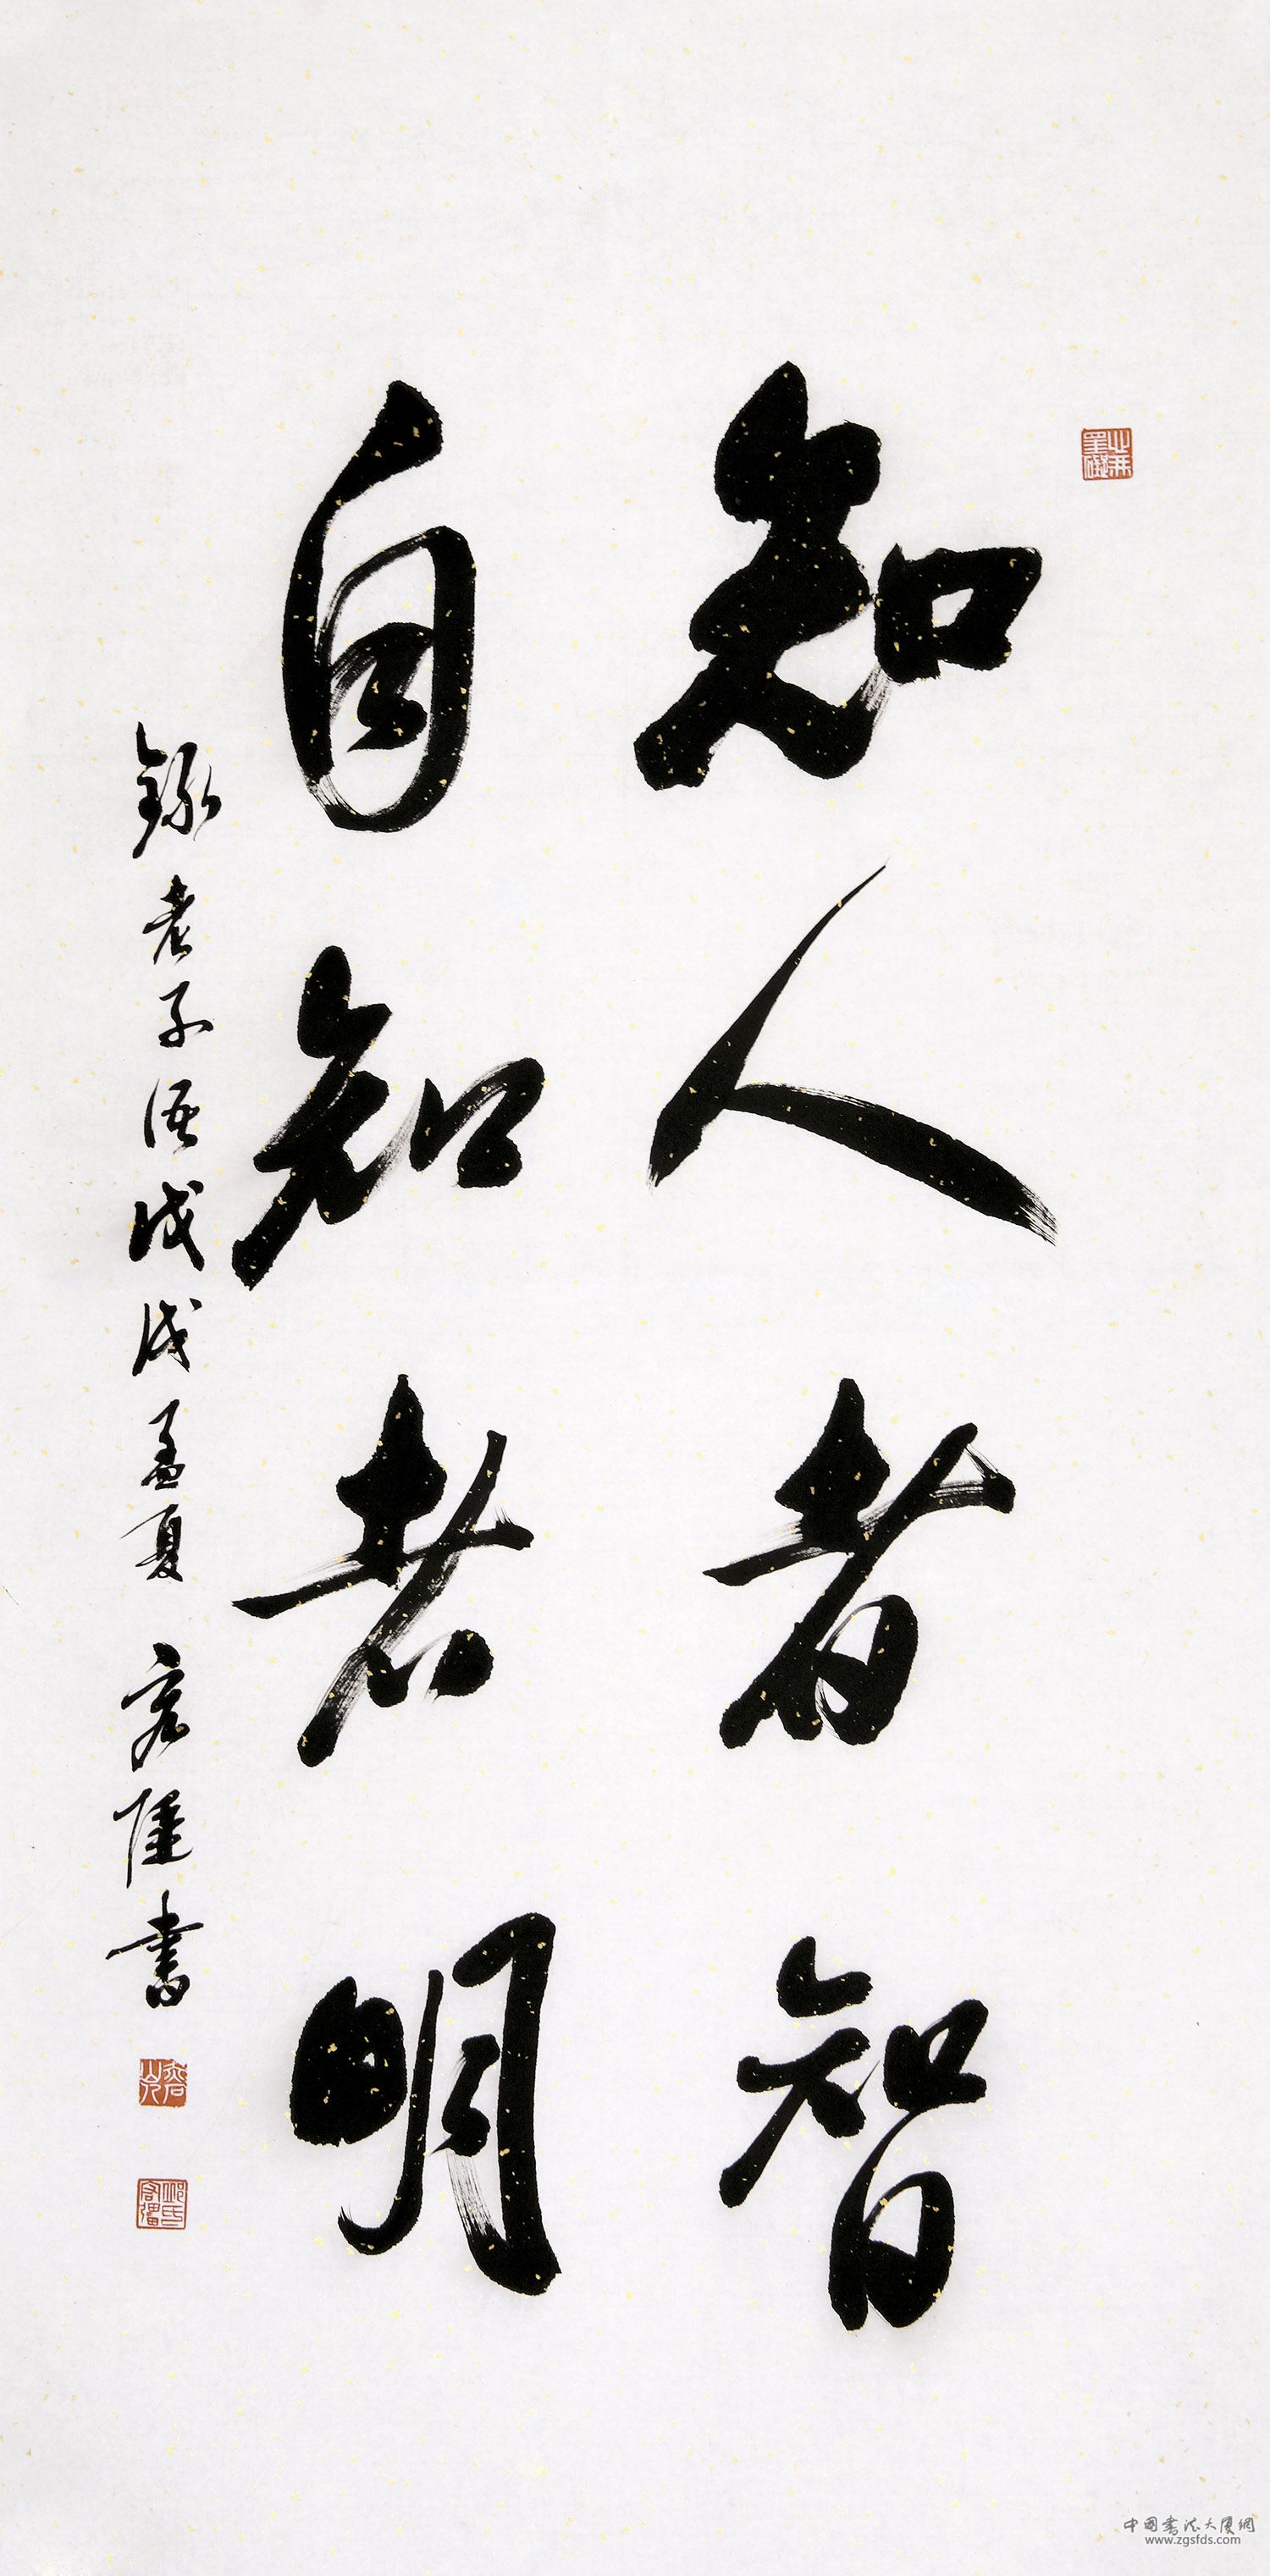 知人者智
自知者明
錄老子語戊戌孟夏 容隆書
中国书法大厦網
www.zgsfds.com